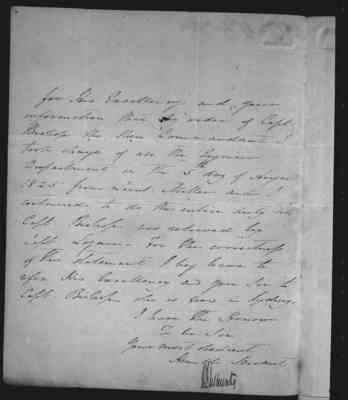 for His Excellency and your
information that by order of Capt
Bishop the then Commandant I
took charge of all the Engineer
Department on the 5 day of August
1825 from Lieut Miller and I
continued to do the entire duty till
Capt Bishop was relieved by
Capt Logan. For the correctness
of this statement I beg leave to
refer His Excellency and you Sir to
Capt Bishop who is now in Sydney
I have the Honor
To be Sir
Your most obedient
Humble Servant